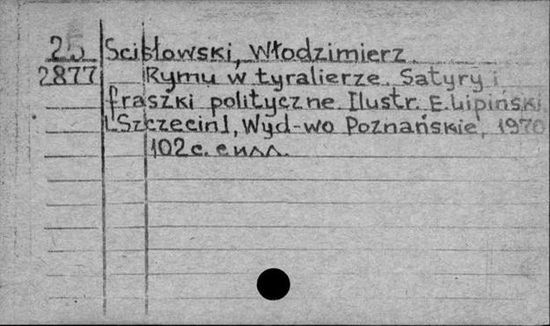 25 Scisłowski, Włodzimierz.
2877 Rymu w tyralierze. Satyry i
fraszki polityczne. Ilustr. E. Lipiński.
[Szczecin], Wyd-wo Poznańskie, 1970
102 с. с илл.